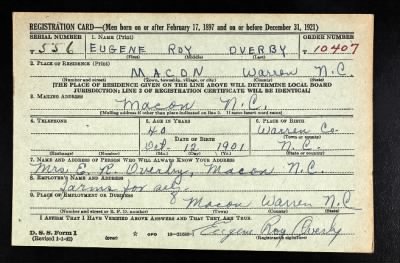 REGISTRATION CARD—(Men born on or after February 17, 1897 and on or before December 31, 1921)
SERIAL NUMBER 1. Name (Print) ORDER NUMBER
T 556 EUGENE ROY OVERBY T 10407
(First) (Middle) (Last)
2. Place of Residence (Print)
MACON Warren N.C.
(Number and street) (Town, township, village, or city) (County) (State)
[THE PLACE OF RESIDENCE GIVEN ON THE LINE ABOVE WILL DETERMINE LOCAL BOARD
JURISDICTION; LINE 2 OF REGISTRATION CERTIFICATE WILL BE IDENTICAL]
3. Mailing Address
Macon N.C.
[Mailing address if other than place indicated on line 2. If same insert word same]
4. Telephone 5. Age in Years 6. Place of Birth
40 Warren Co.
Date of Birth (Town or county)
Oct. 12 1901 N.C.
(Exchange) (Number) (Mo.) (Day) (Yr.) (State or country)
7. Name and Address of Person Who Will Always Know Your Address
Mrs. E. R. Overby, Macon N.C.
8. Employer's Name and Address
Farms for self
9. Place of Employment or Business
Macon Warren N.C.
(Number and street or R. F. D. number) (Town) (County) (State)
I Affirm That I Have Verified Above Answers and That They Are True.
D. S. S. Form 1
(Revised 1-1-42) (over) GPO Eugene Roy Overby
(Registrant's signature)